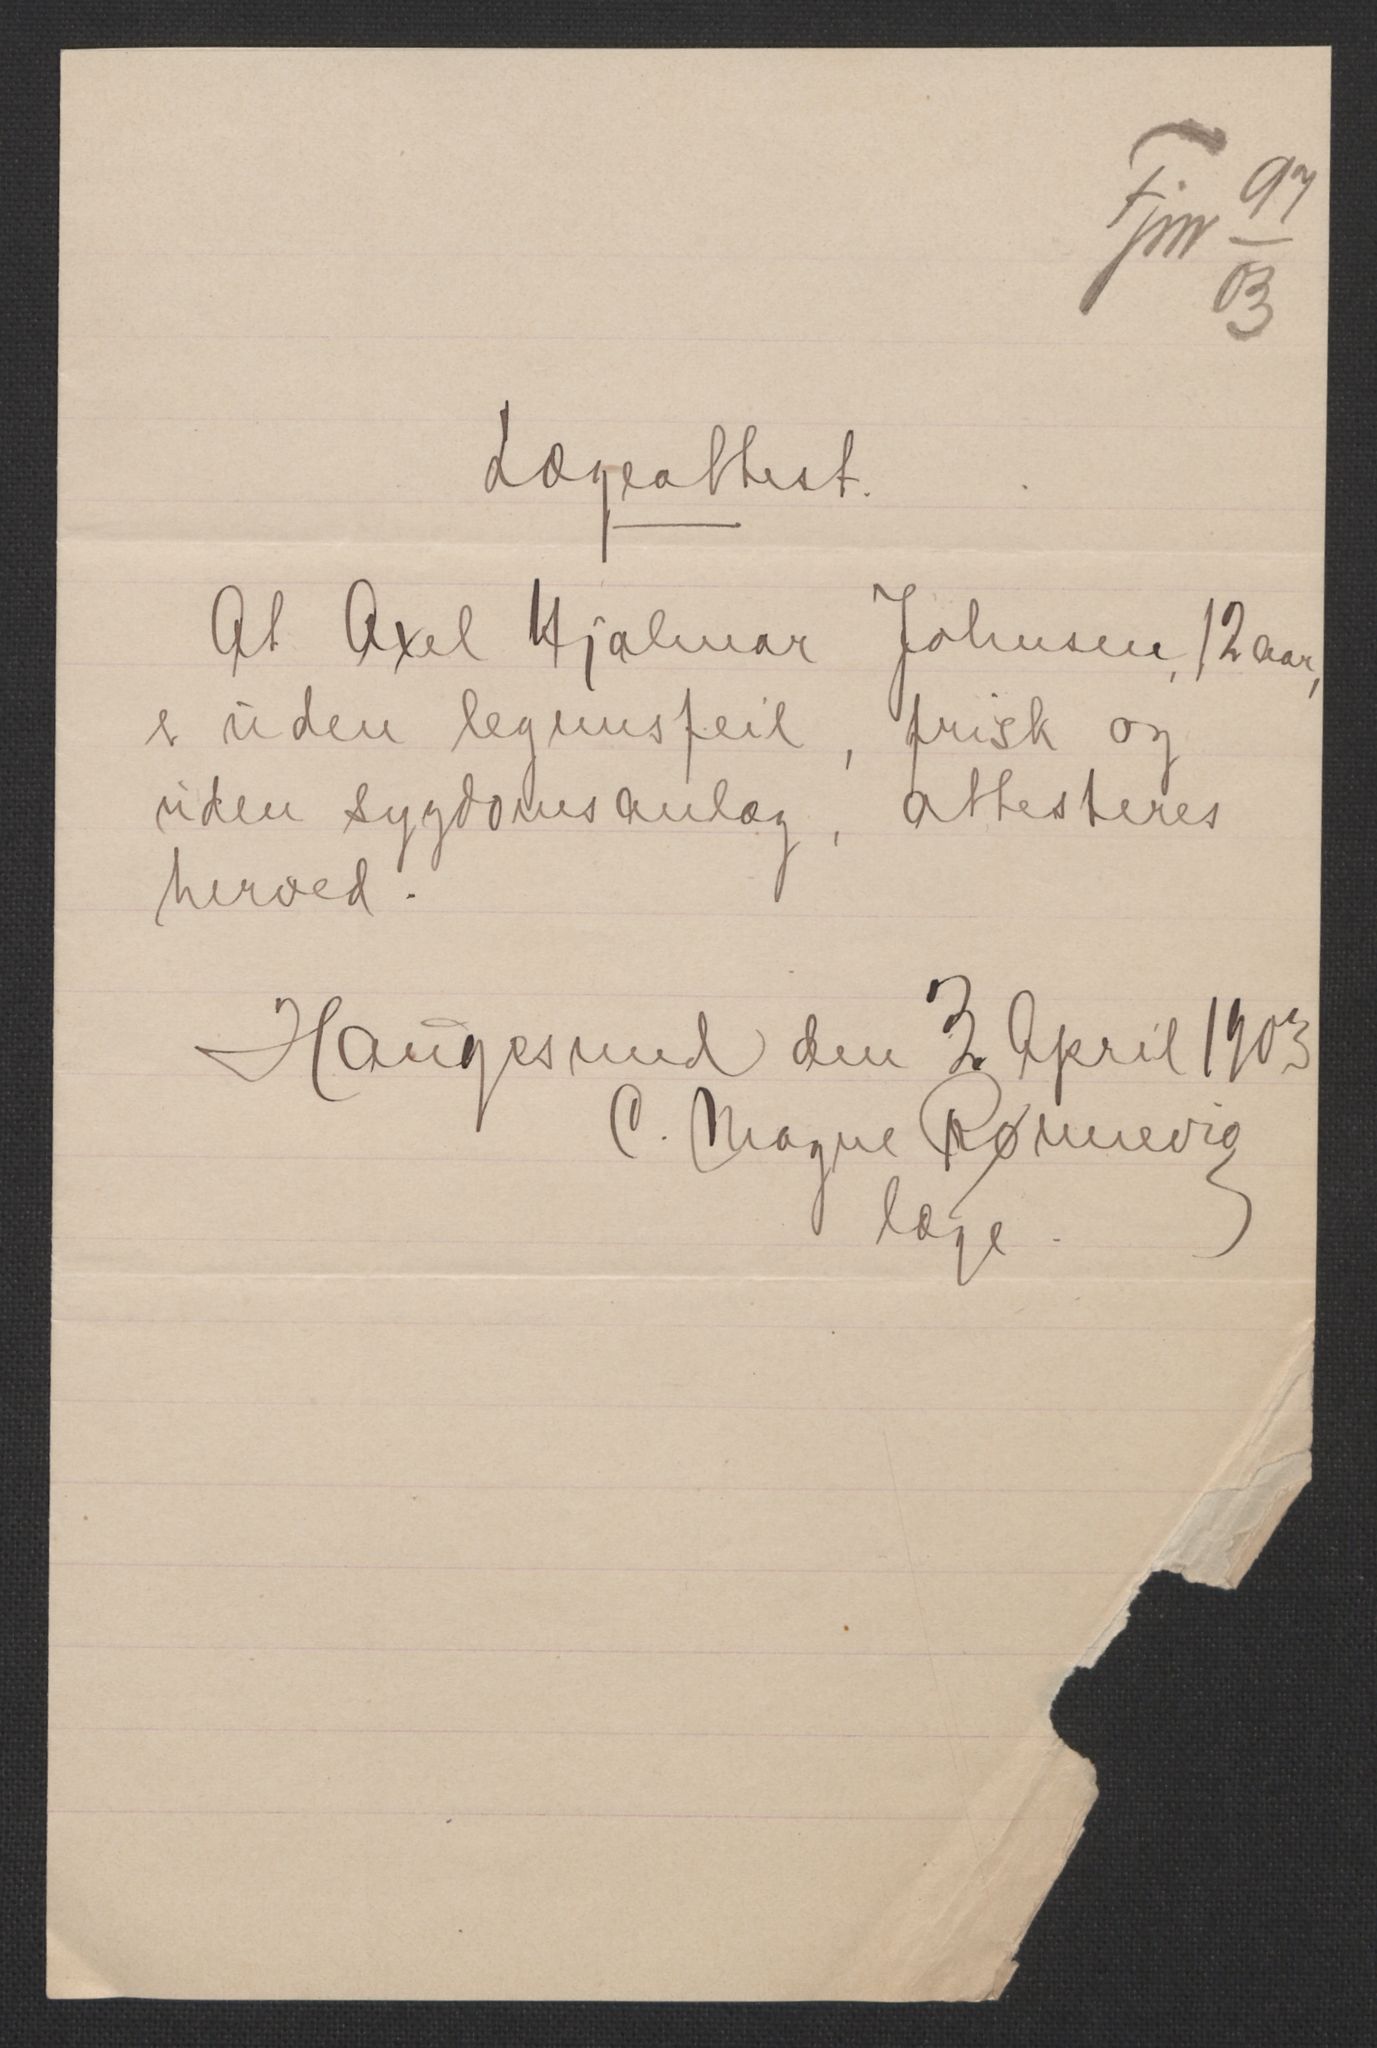 Fjm 97
03
Lægeattest.
At Axel Hjalmar Johnsen, 12 aar,
er uden legemsfeil, frisk og
uden sygdomsanlæg, attesteres
herved.
Haugesund den 3 April 1903
C. Magne Rønnevig
læge.